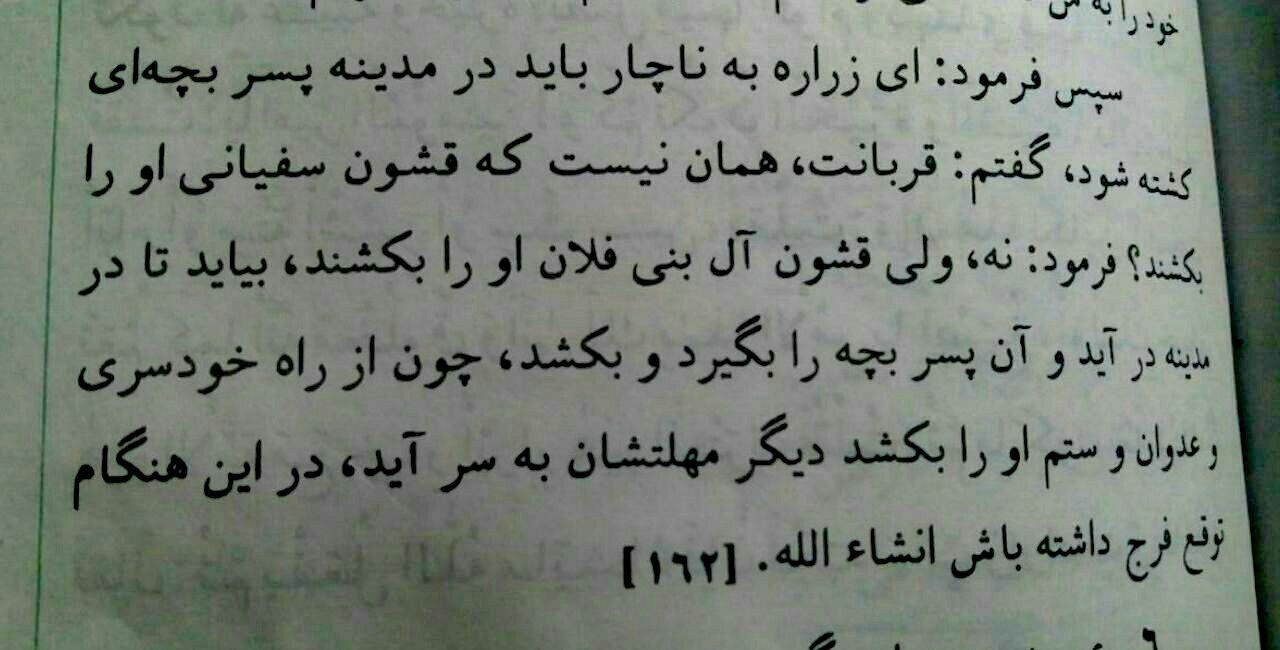 خود را به من
سپس فرمود: ای زراره به ناچار باید در مدینه پسر بچه‌ای
کشته شود، گفتم: قربانت، همان نیست که قشون سفیانی او را
بکشند؟ فرمود: نه، ولی قشون آل بنی فلان او را بکشند، بیاید تا در
مدینه در آید و آن پسر بچه را بگیرد و بکشد، چون از راه خودسری
و عدوان و ستم او را بکشد دیگر مهلتشان به سر آید، در این هنگام
توقع فرج داشته باش انشاء الله. [١٦٢]